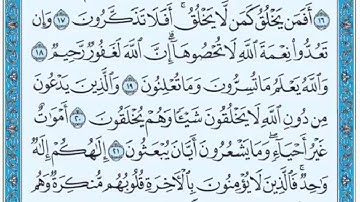 ١٦ أَفَمَن يَخْلُقُ كَمَن لَّا يَخْلُقُ ۗ أَفَلَا تَذَكَّرُونَ ١٧ وَإِن
تَعُدُّوا۟ نِعْمَةَ ٱللَّهِ لَا تُحْصُوهَآ ۗ إِنَّ ٱللَّهَ لَغَفُورٌ رَّحِيمٌ ١٨
وَٱللَّهُ يَعْلَمُ مَا تُسِرُّونَ وَمَا تُعْلِنُونَ ١٩ وَٱلَّذِينَ يَدْعُونَ
مِن دُونِ ٱللَّهِ لَا يَخْلُقُونَ شَيْـًٔا وَهُمْ يُخْلَقُونَ ٢٠ أَمْوَٰتٌ
غَيْرُ أَحْيَآءٍ ۖ وَمَا يَشْعُرُونَ أَيَّانَ يُبْعَثُونَ ٢١ إِلَـٰهُكُمْ إِلَـٰهٌ
وَٰحِدٌ ۚ فَٱلَّذِينَ لَا يُؤْمِنُونَ بِٱلْـَٔاخِرَةِ قُلُوبُهُم مُّنكِرَةٌ وَهُم